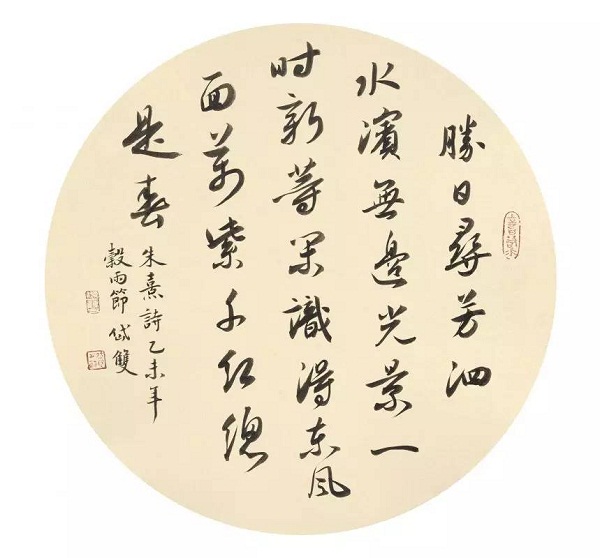 勝日尋芳泗
水濱無邊光景一
时新等閑識得东风
面萬紫千红總
是春
朱熹詩乙未年
穀雨節 双